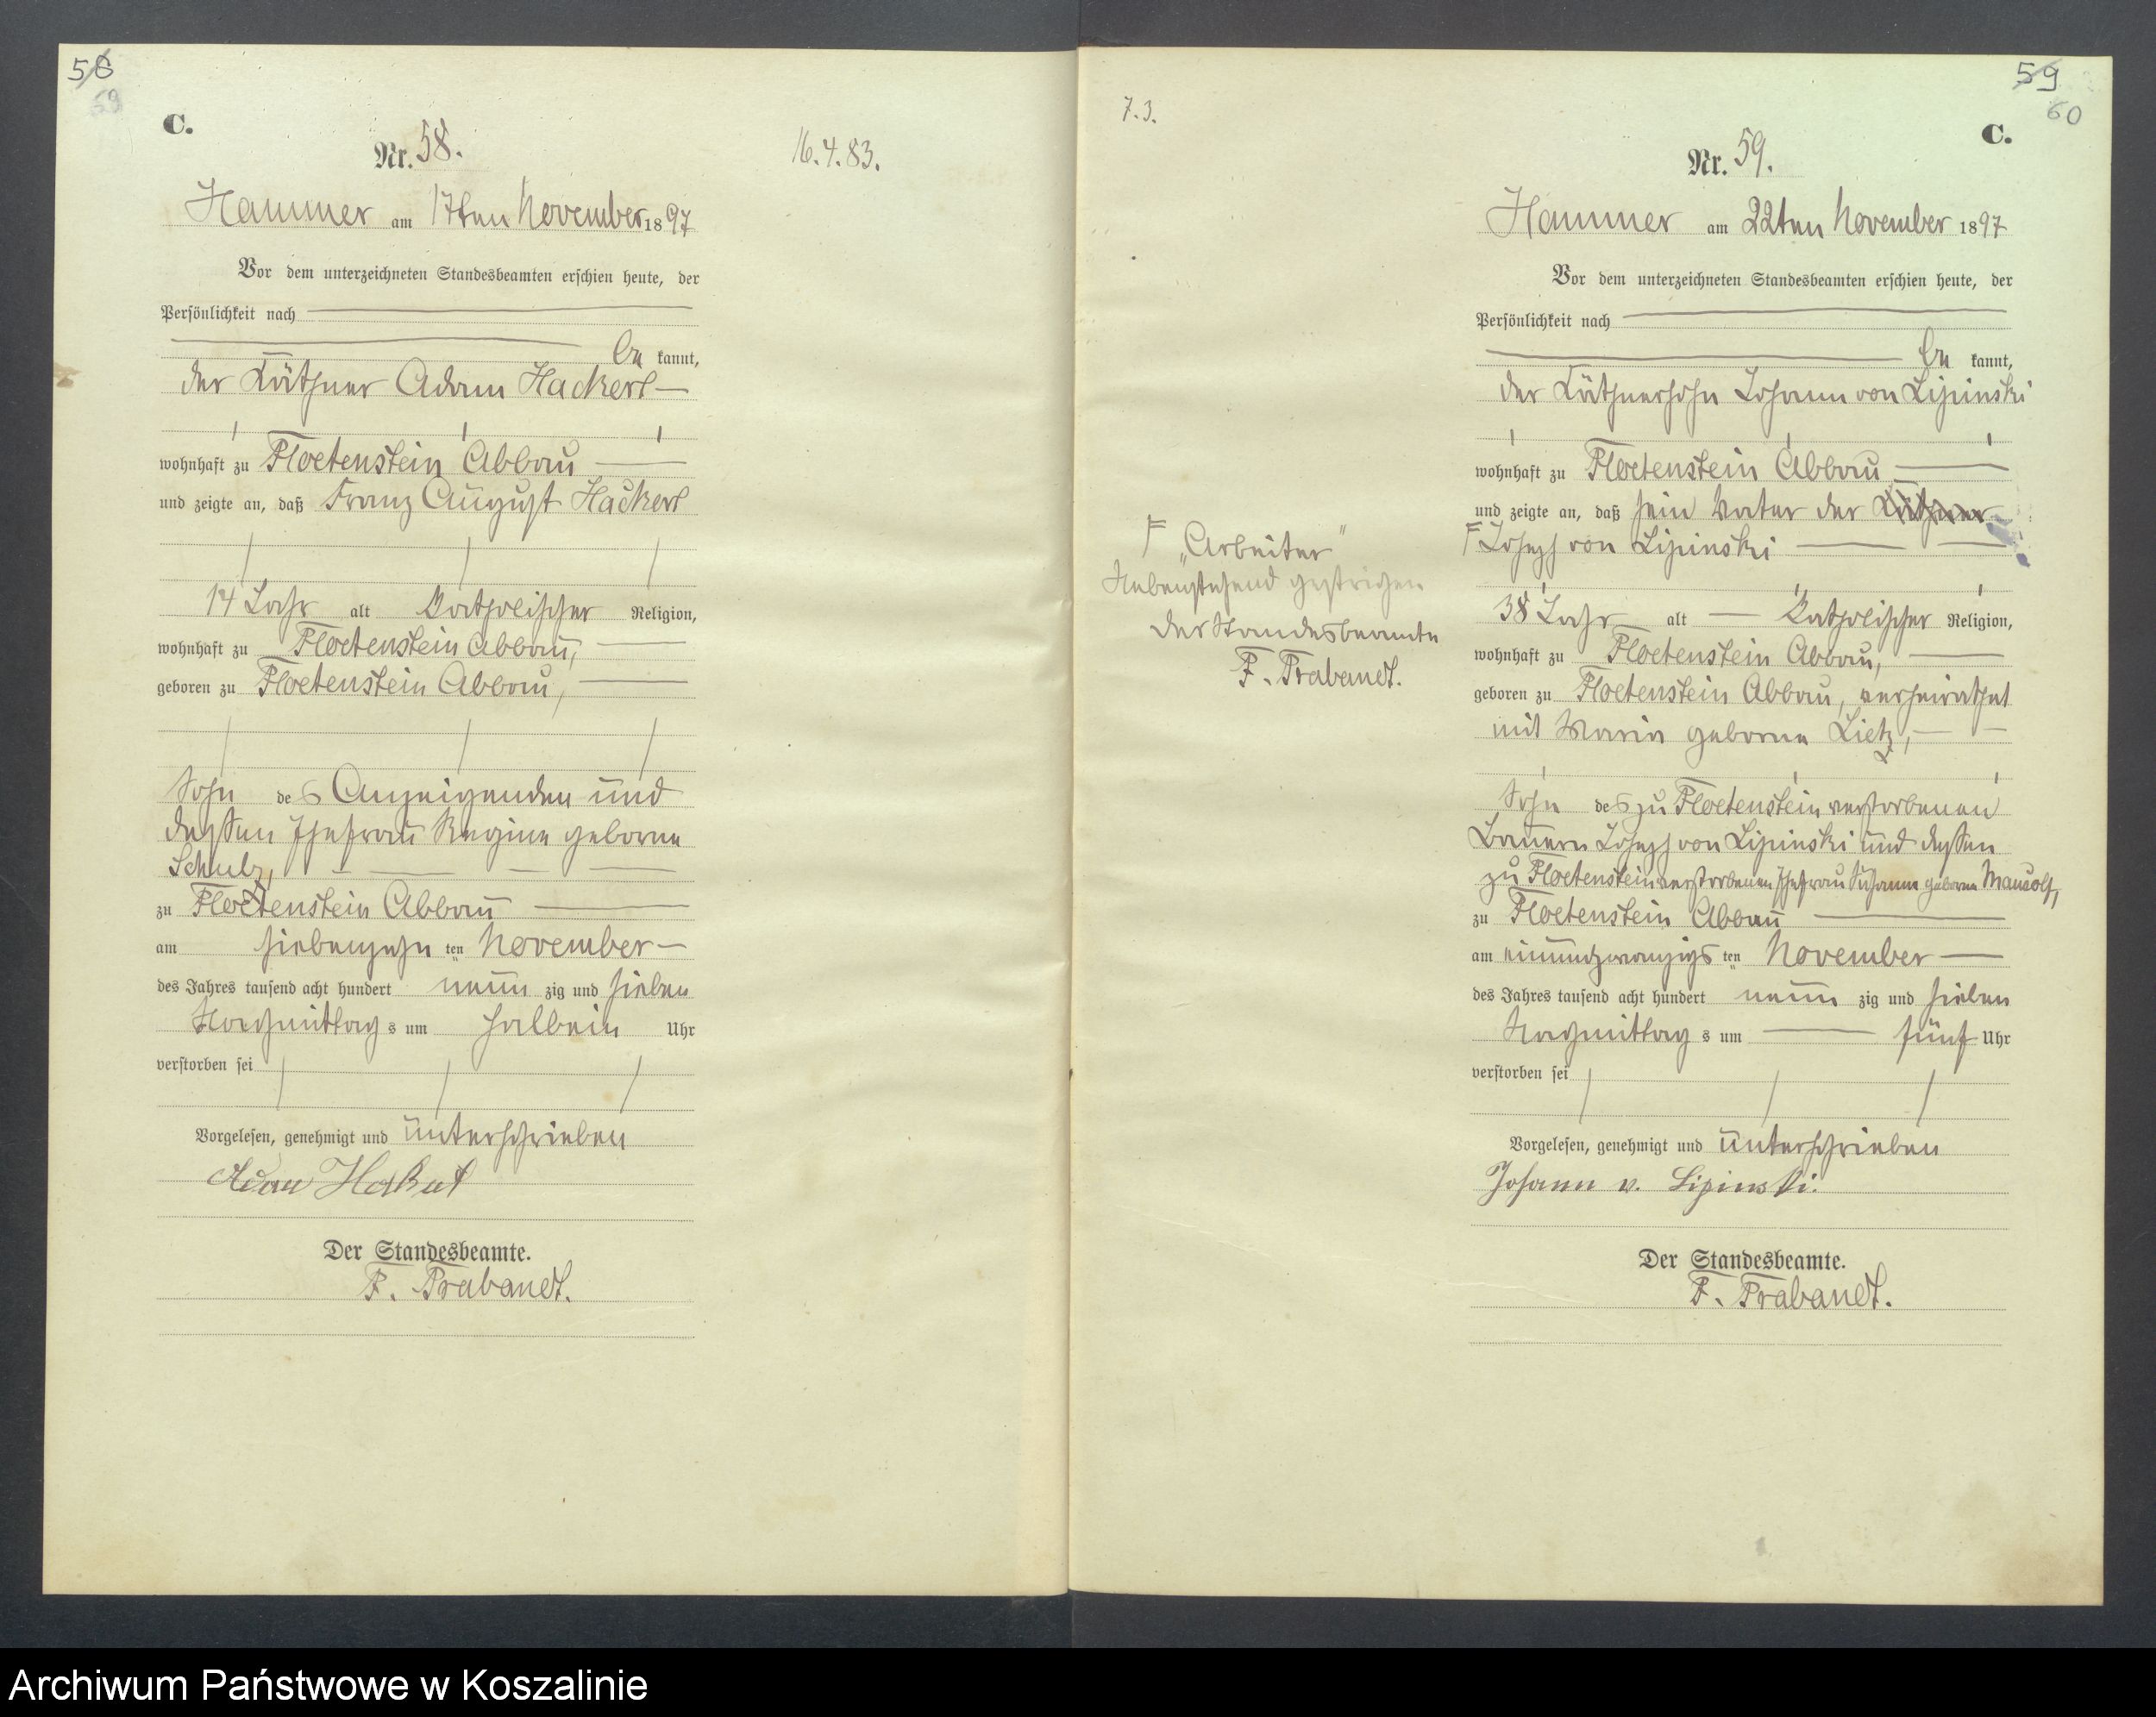 58
59
C.
Nr. 58.
16.4.83.
Hammer am 17ten November 1897
Vor dem unterzeichneten Standesbeamten erschien heute, der
Persönlichkeit nach
be kannt,
der Käthner Adam Hackert
wohnhaft zu Floetenstein Abbau
und zeigte an, daß Franz August Hackert
14 Jahr alt Katholischer Religion,
wohnhaft zu Floetenstein Abbau,
geboren zu Floetenstein Abbau,
Sohn des Anzeigenden und
dessen Ehefrau Regine geborne
Schulz,
zu Floetenstein Abbau
am siebenzehn ten November
des Jahres tausend acht hundert neun zig und sieben
Nachmittag s um halbein Uhr
verstorben sei
Vorgelesen, genehmigt und unterschrieben
Adam Hakert
Der Standesbeamte.
F. Trabandt.
59
60
7.3.
C.
Nr. 59.
Hammer am 22ten November 1897
Vor dem unterzeichneten Standesbeamten erschien heute, der
Persönlichkeit nach
be kannt,
der Käthnersohn Johann von Lipinski
wohnhaft zu Floetenstein Abbau
und zeigte an, daß sein Vater der Käthner
F Joseph von Lipinski
F „Arbeiter"
Nebenstehend gestrichen
Der Standesbeamte
F. Trabandt.
38 Jahr alt Katholischer Religion,
wohnhaft zu Floetenstein Abbau,
geboren zu Floetenstein Abbau, verheirathet
mit Maria geborne Lietz,
Sohn des zu Floetenstein verstorbenen
Bauern Joseph von Lipinski und dessen
zu Floetenstein verstorbenen Ehefrau Susanne geborne Mausolf,
zu Floetenstein Abbau
am einundzwanzigs ten November
des Jahres tausend acht hundert neun zig und sieben
Nachmittag s um fünf Uhr
verstorben sei
Vorgelesen, genehmigt und unterschrieben
Johann v. Lipinski.
Der Standesbeamte.
F. Trabandt.
Archiwum Państwowe w Koszalinie